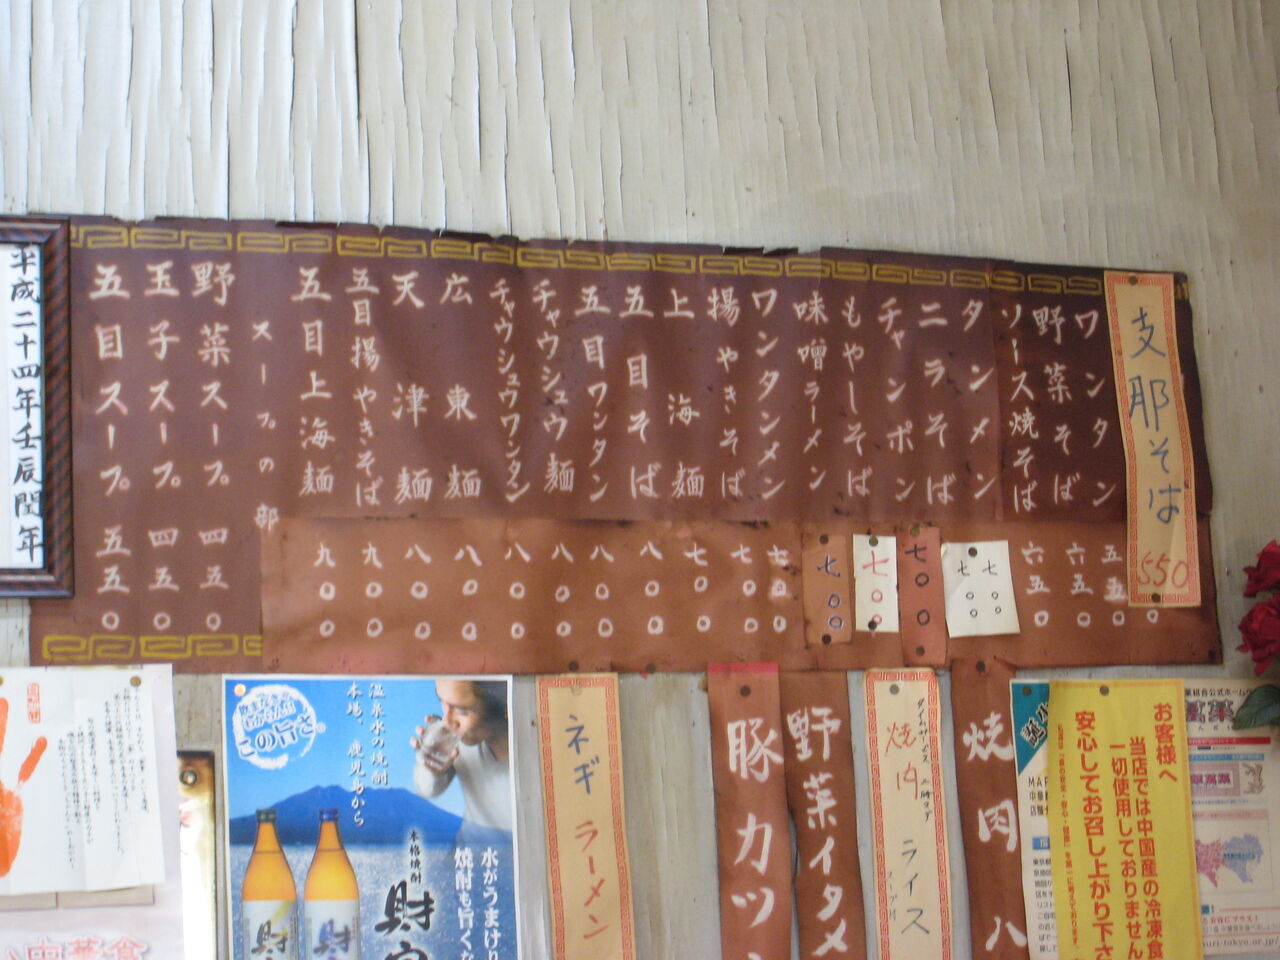 支那そば 550
ワンタン 五五〇
野菜そば 六五〇
ソース焼そば 六五〇
タンメン 七〇〇
ニラそば 七〇〇
チャンポン 七〇〇
もやしそば 七〇〇
味噌ラーメン 七〇〇
ワンタンメン 七五〇
揚やきそば 七〇〇
上海麺 七〇〇
五目そば 八〇〇
五目ワンタン 八〇〇
チャウシュウ麺 八〇〇
チャウシュウワンタン 八〇〇
広東麺 八〇〇
天津麺 八〇〇
五目揚やきそば 九〇〇
五目上海麺 九〇〇
スープの部
野菜スープ 四五〇
玉子スープ 四五〇
五目スープ 五五〇
平成二十四年壬辰閏年
お客様へ
当店では中国産の冷凍食
一切使用しておりません
安心してお召し上がり下さ
焼肉 八
焼肉ライス
スープ付
野菜イタメ
豚カツ
ネギラーメン
温泉水の焼酎
本場、鹿児島から
この旨さ。
水がうまけり
焼酎も旨くな
本格焼酎
財
財
財
uri-tokyo.or.jp/